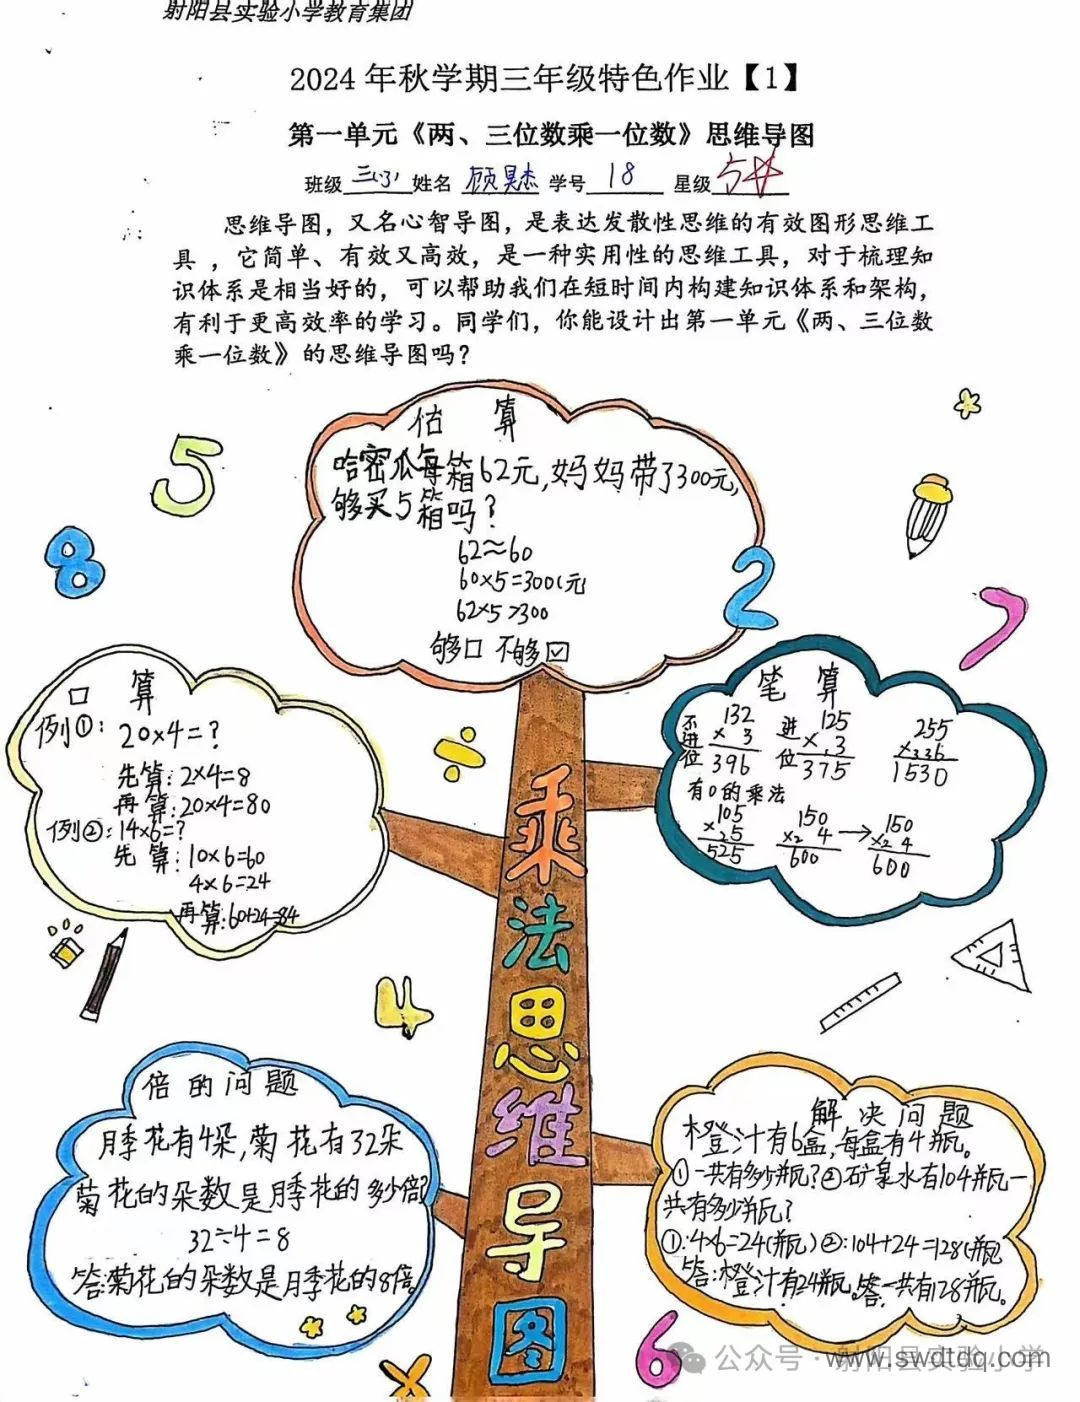 射阳县实验小学教育集团
2024年秋学期三年级特色作业【1】
第一单元《两、三位数乘一位数》思维导图
班级 三(3) 姓名 顾昊杰 学号 18 星级 5☆
思维导图，又名心智导图，是表达发散性思维的有效图形思维工
具，它简单、有效又高效，是一种实用性的思维工具，对于梳理知
识体系是相当好的，可以帮助我们在短时间内构建知识体系和架构，
有利于更高效率的学习。同学们，你能设计出第一单元《两、三位数
乘一位数》的思维导图吗？
估 算
哈密瓜每箱62元，妈妈带了300元，
够买5箱吗？
62≈60
60×5=300(元
62×5>300
够□ 不够☑
5
8
2
7
口 算
例①：20×4=？
先算：2×4=8
再算：20×4=80
例②：14×6=？
先算：10×6=60
4×6=24
再算：60+24=84
÷
笔 算
不进位
132
× 3
396
进位
125
× 3
375
255
×336
1530
有0的乘法
105
×25
525
150
×2 4
600
→
150
×2 4
600
乘法思维导图
4
倍的问题
月季花有4朵，菊花有32朵
菊花的朵数是月季花的多少倍？
32÷4=8
答：菊花的朵数是月季花的8倍。
解决问题
橙汁有6盒，每盒有4瓶。
①一共有多少瓶？②矿泉水有104瓶一
共有多少瓶？
①：4×6=24(瓶）②：104+24=128(瓶
答：橙汁有24瓶。答：一共有128瓶。
×
6
公众号·射阳县实验小学
www.swdtdq.com